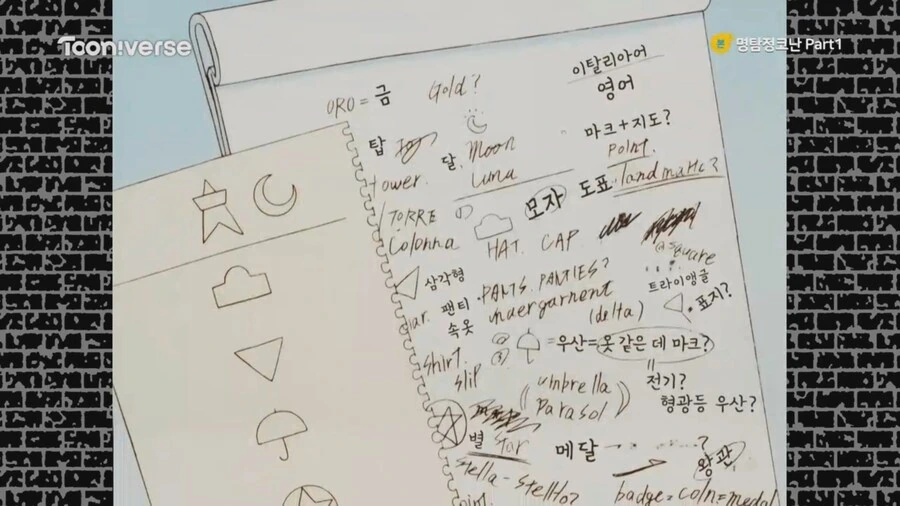 Tooniverse
본 명탐정코난 Part1
이탈리아어
영어
ORO = 금 Gold?
탑 달, Moon
Luna
tower.
마크+지도?
point.
모자 도표. landmark?
TORRE
Colonna
HAT. CAP
@square
삼각형
팬티
속옷
PANTS. PANTIES?
(delta)
트라이앵글
표지?
=우산=옷 같은 데 마크?
shirt.
slip
umbrella
Parasol
전기?
형광등 우산?
별 star
메달 ?
왕관
stella-
badge=coin=medal